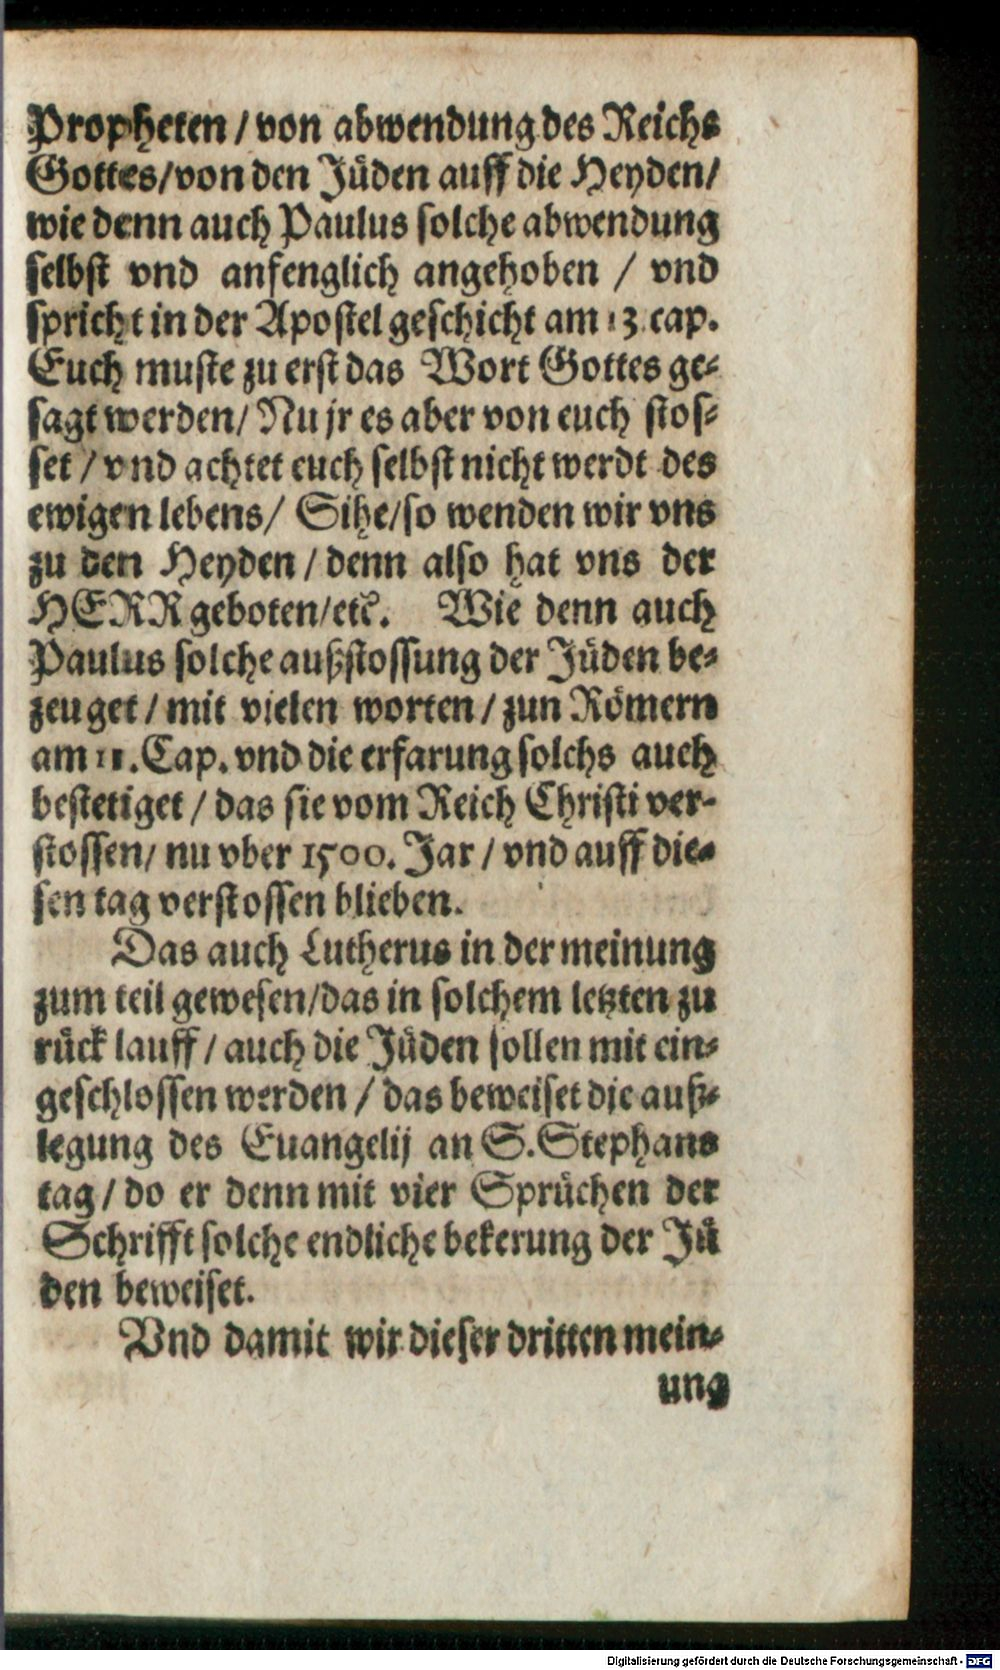 Propheten / von abwendung des Reichs
Gottes/von den Jüden auff die Heyden/
wie denn auch Paulus solche abwendung
selbst vnd anfenglich angehoben / vnd
spricht in der Apostel geschicht am 13. cap.
Euch muste zu erst das Wort Gottes ge-
sagt werden/ Nu jr es aber von euch stos-
set / vnd achtet euch selbst nicht werdt des
ewigen lebens/ Sihe/so wenden wir vns
zu den Heyden / denn also hat vns der
HERR geboten/etc. Wie denn auch
Paulus solche außstossung der Jüden be-
zeuget / mit vielen worten / zun Römern
am 11. Cap. vnd die erfarung solchs auch
bestetiget / das sie vom Reich Christi ver-
stossen/ nu vber 1500. Jar / vnd auff die-
sen tag verstossen blieben.
Das auch Lutherus in der meinung
zum teil gewesen/das in solchem letzten zu
rück lauff / auch die Jüden sollen mit ein-
geschlossen werden / das beweiset die auß-
legung des Euangelij an S. Stephans
tag / do er denn mit vier Sprüchen der
Schrifft solche endliche bekerung der Jü
den beweiset.
Vnd damit wir dieser dritten mein-
ung
Digitalisierung gefördert durch die Deutsche Forschungsgemeinschaft - DFG